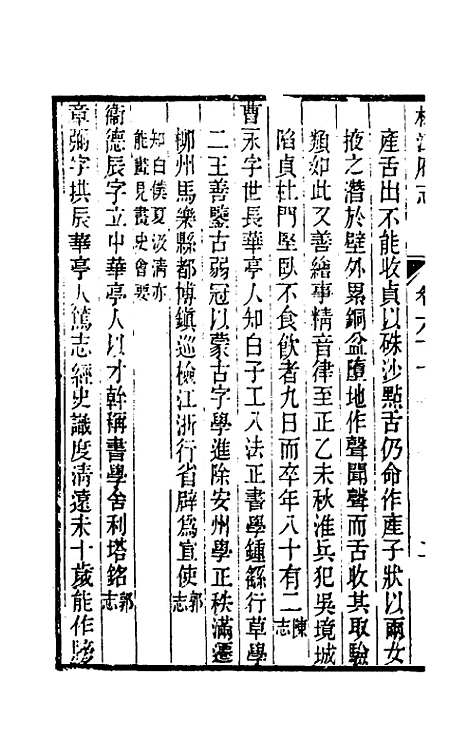 松江府志　卷六十
產舌出不能收貞以硃沙㸃舌仍命作產子狀以兩女
掖之潛於壁外累銅盆墮地作聲聞聲而舌收其取驗
類如此又善繪事精音律至正乙未秋淮兵犯吳境城
陷貞杜門堅臥不食飲者九日而卒年八十有二陳志
曹永字世長華亭人知白子工八法正書學鍾繇行草學
二王善鑒古弱冠以蒙古字學進除安州學正秩滿遷
柳州馬樂縣都博鎮巡檢江浙行省辟為宣使郭志
知白僕夏淡清亦
能畫見畫史會要
衞德辰字立中華亭人以才幹稱書學舍利塔銘郭志
章弼字拱辰華亭人篤志經史識度清遠未十歲能作牓